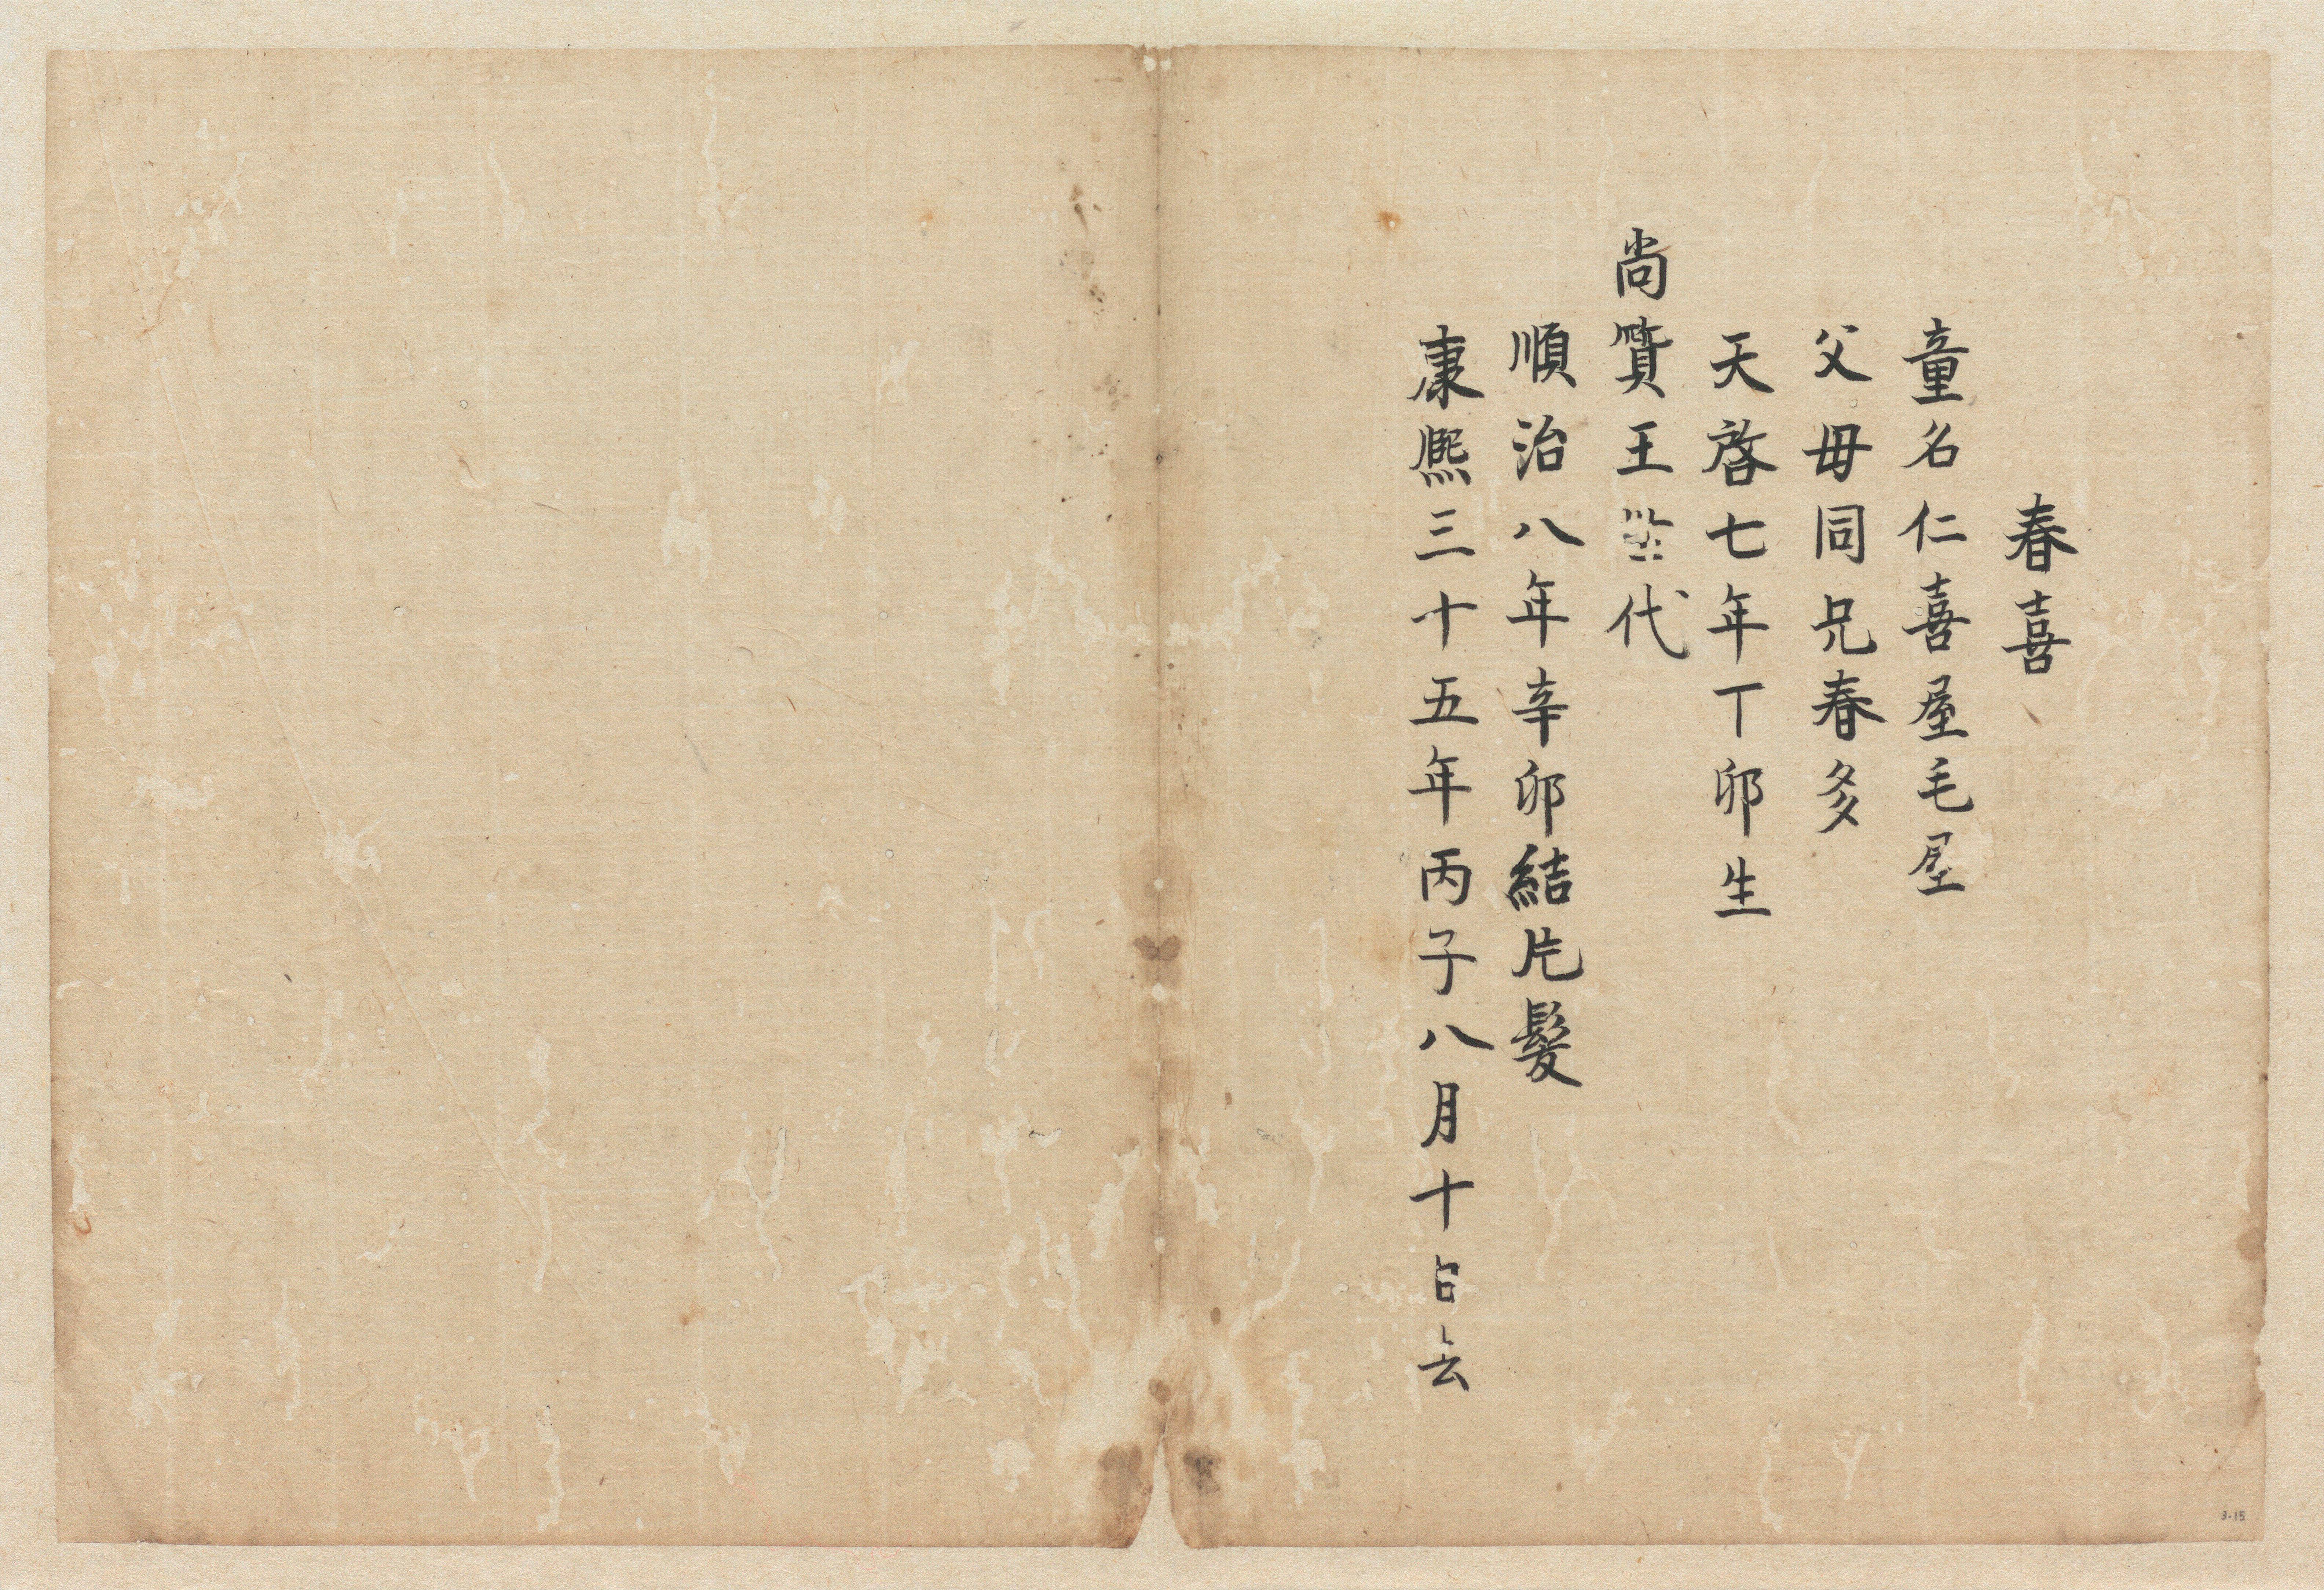 春喜
童名仁喜屋毛屋
父母同兄春多
天啓七年丁卯生
尚質王代
順治八年辛卯結片髪
康熙三十五年丙子八月十日去
3-15